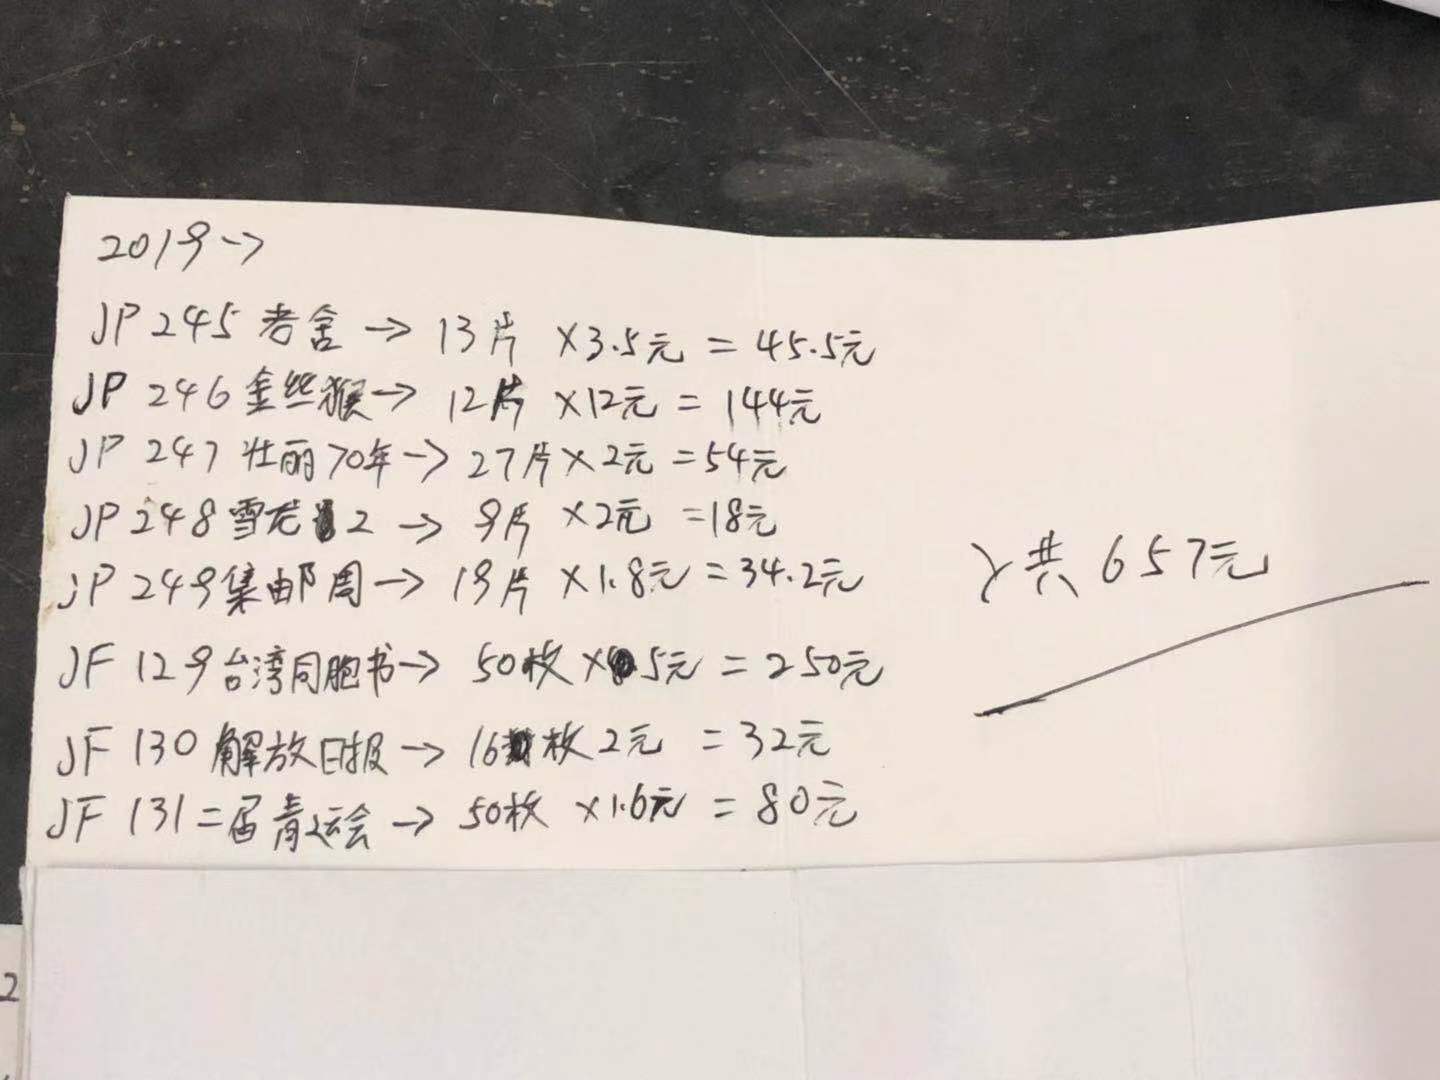 2019→
JP 245 老舍 → 13片 ×3.5元 = 45.5元
JP 246 金丝猴→ 12片 ×12元 = 144元
JP 247 壮丽70年→ 27片×2元 =54元
JP 248 雪龙2 → 9片 ×2元 =18元
JP 249集邮周→ 19片 ×1.8元 =34.2元
共 657元
JF 129台湾同胞书→ 50枚 ×5元 = 250元
JF 130 解放日报→ 16枚 2元 = 32元
JF 131 二届青运会 → 50枚 ×1.6元 = 80元
2